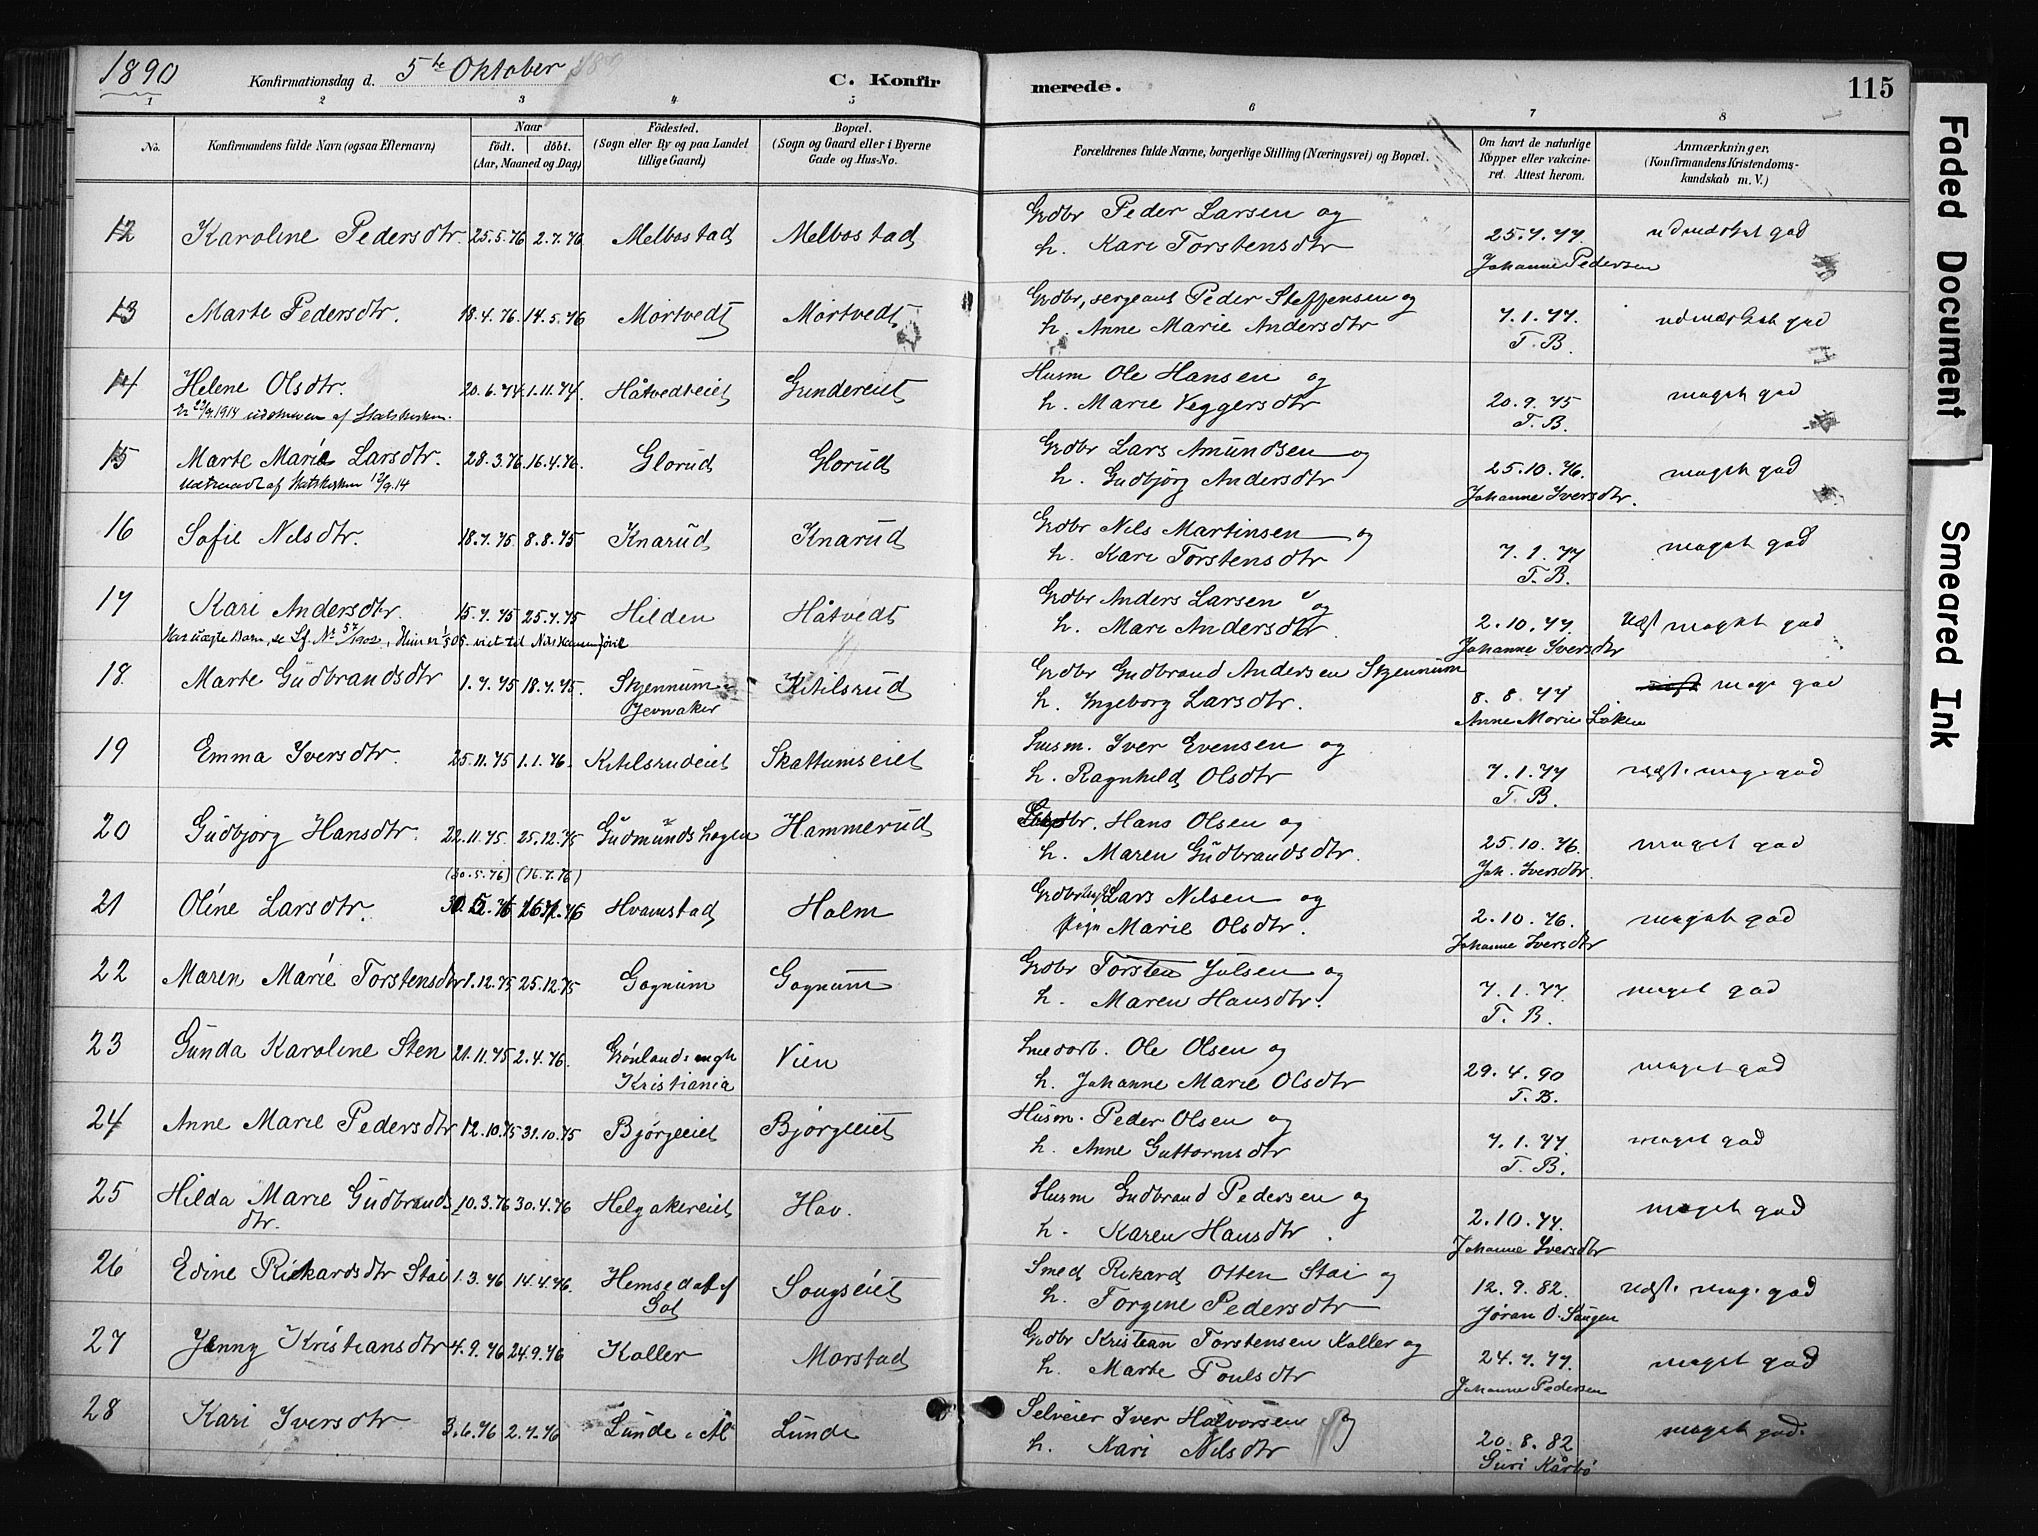 1890 Konfirmationsdag d. 5te Oktober
C. Konfirmerede.
115
1 2 3 4 5 6 7 8
No.
Konfirmandens fulde Navn (ogsaa Efternavn)
Naar
født. døbt.
(Aar, Maaned og Dag)
Födested.
(Sogn eller By og paa Landet
tillige Gaard)
Bopæl.
(Sogn og Gaard eller i Byerne
Gade og Hus-No.
Forældrenes fulde Navne, borgerlige Stilling (Næringsvei) og Bopæl.
Om havt de naturlige
Kopper eller vakcine-
ret. Attest herom.
Anmærkninger,
(Konfirmandens Kristendoms-
kundskab m. V.)
12 Karoline Pedersdtr. 25.5.76 2.7.76 Melbostad Melbostad Grdbr Peder Larsen og
h. Kari Torstensdtr 25.7.77. udmærket god
Johanne Pedersen
13 Marte Pedersdtr. 18.4.76. 14.5.76 Mortvedt Mortvedt Grdbr, sergeant Peder Steffensen og
h. Anne Marie Andersdtr 7.1.77. udmærket god
T. B.
14 Helene Olsdtr. 20.6.74 1.11.74. Håtvedteiet Grindereiet Husm Ole Hansen og
h. Marie Veggersdtr 20.9.75 meget god
T. B.
15 Marte Marie Larsdtr. 28.3.76 16.4.76. Glorud Glorud Grdbr Lars Amundsen og
Udtraadt af Statskirken 12/9.14
h. Gudbjørg Andersdtr 25.10.76. meget god
Johanne Iversdtr.
16 Sofie Nilsdtr. 18.7.75. 8.8.75 Knarud Knarud Grdbr Nils Martinsen og
h. Kari Torstensdtr 7.1.77 meget god
T. B.
17 Kari Andersdtr. 15.7.75 25.7.75 Hilden Håtvedt Grdbr Anders Larsen og
h. Mari Andersdtr. 2.10.77. næst meget god
Johanne Iversdtr
18 Marte Gudbrandsdtr 1.7.75 18.7.75. Skjennum Kitilsrud Grdbr Gudbrand Andersen Skjennum
Jevnaker
h. Ingeborg Larsdtr. 8.8.77 meget god
Anne Marie Løken
19 Emma Iversdtr. 25.11.75 1.1.76. Kitilsrudeiet Skattumseiet Husm. Iver Evensen og
h. Ragnhild Olsdtr 7.1.77 næst. meg. god
T. B.
20 Gudbjørg Hansdtr. 22.11.75. 25.12.75 Gudmundshagen Hammerud Grdbr. Hans Olsen og
h. Maren Gudbrandsdtr. 25.10.76. meget god
Joh. Iversdtr.
(30.5.76) (16.7.76)
21 Oline Larsdtr. Hvamstad Holm Lars Nilsen og
Pige Marie Olsdtr. 2.10.76. meget god
Johanne Iversdtr
22 Maren Marie Torstensdtr 1.12.75 25.12.75 Gognum Gognum Grdbr Torsten Julsen og
h. Maren Hansdtr. 7.1.77. meget god
T. B.
23 Gunda Karoline Sten 21.11.75 2.4.76. Grønlands mgh Vien Smedarb. Ole Olsen og
Kristiania
h. Johanne Marie Olsdtr 29.4.90 meget god
T. B.
24 Anne Marie Pedersdtr 12.10.75 31.10.75 Bjørgeeiet Bjørgeeiet Husm. Peder Olsen og
h. Anne Guttormsdtr 7.1.77. meget god
T. B.
25 Hilda Marie Gudbrands
dtr. 10.3.76 30.4.76 Helgakereiet Hov. Husm Gudbrand Pedersen og
h. Karen Hansdtr. 2.10.77. meget god
Johanne Iversdtr
26 Edine Rikardsdtr Stai 1.3.76 14.4.76. Hemsedal af
Gol Sougseiet Smed Rikard Otten Stai og
h. Torgine Pedersdtr 12.9.82. næst. meg. god
Jøran O. Saugen
27 Jenny Kristiansdtr 4.9.76 24.9.76 Koller Morstad Grdbr Kristian Torstensen Koller og
h. Marte Poulsdtr 24.7.77. meget god
Johanne Pedersen
28 Kari Iversdtr 3.6.76 2.7.76 Lunde Lunde Selveier Iver Halvorsen og
h. Kari Nilsdtr 20.8.82 meget god.
Guri Kårbø
Faded Document
Smeared Ink